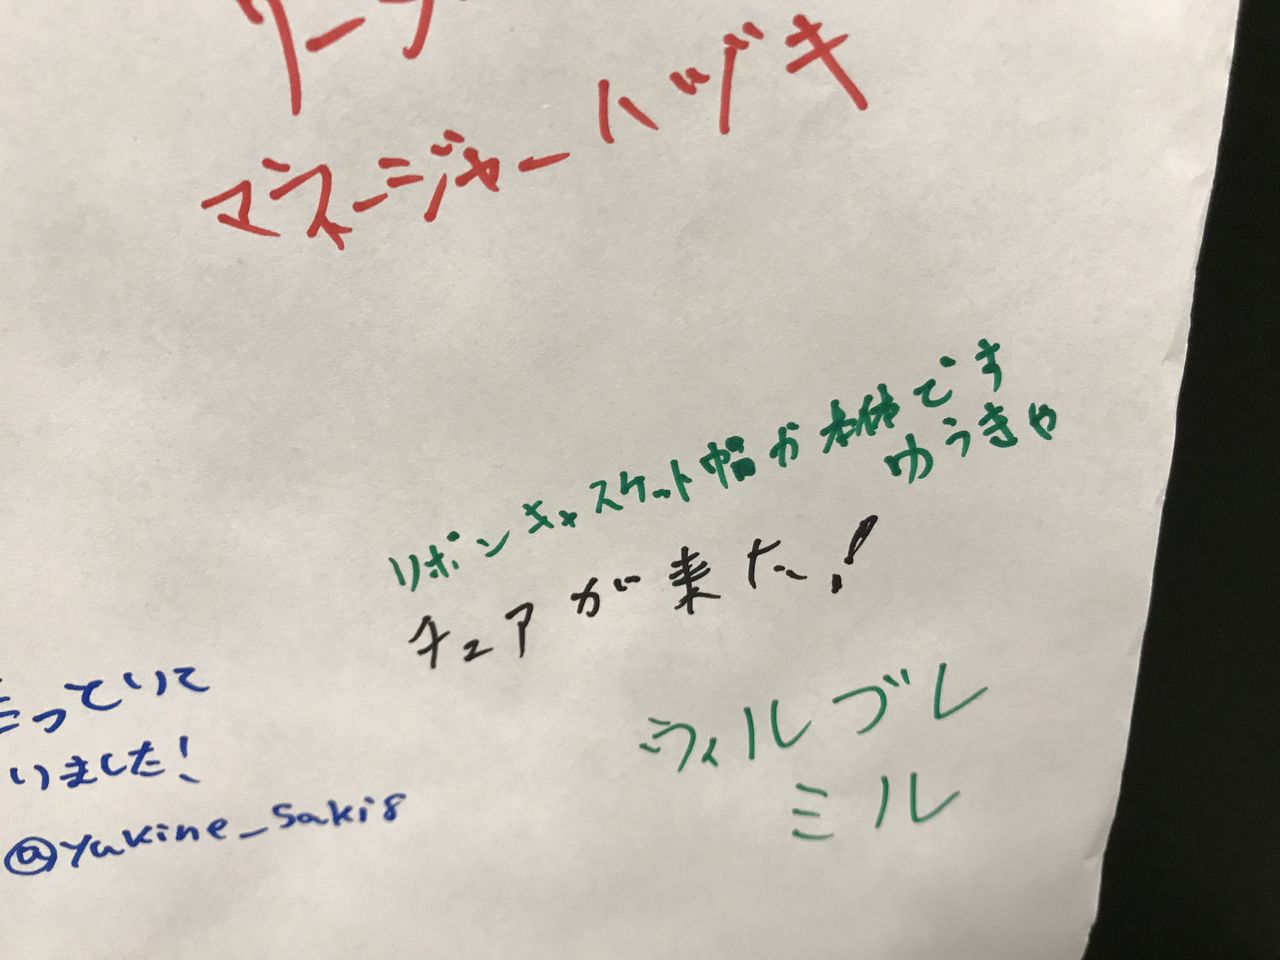 マネージャーハヅキ
リボンキャスケット帽が本体です
ゆうきや
チュアが来た!
っていて
いました!
@yukine_saki8
ヴィルブレ
ミル